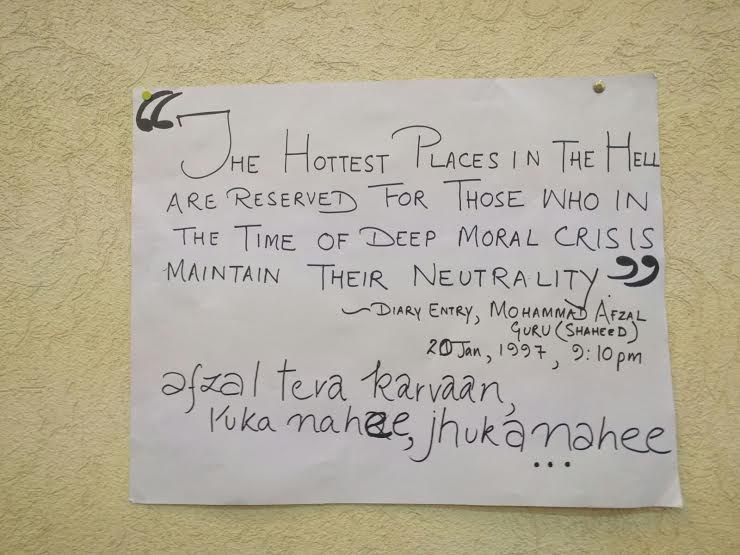 “THE HOTTEST PLACES IN THE HELL
ARE RESERVED FOR THOSE WHO IN
THE TIME OF DEEP MORAL CRISIS
MAINTAIN THEIR NEUTRALITY”
~DIARY ENTRY, MOHAMMAD AFZAL
GURU (SHAHEED)
20 Jan, 1997, 9:10pm
afzal tera karvaan,
ruka nahee, jhuka nahee
...